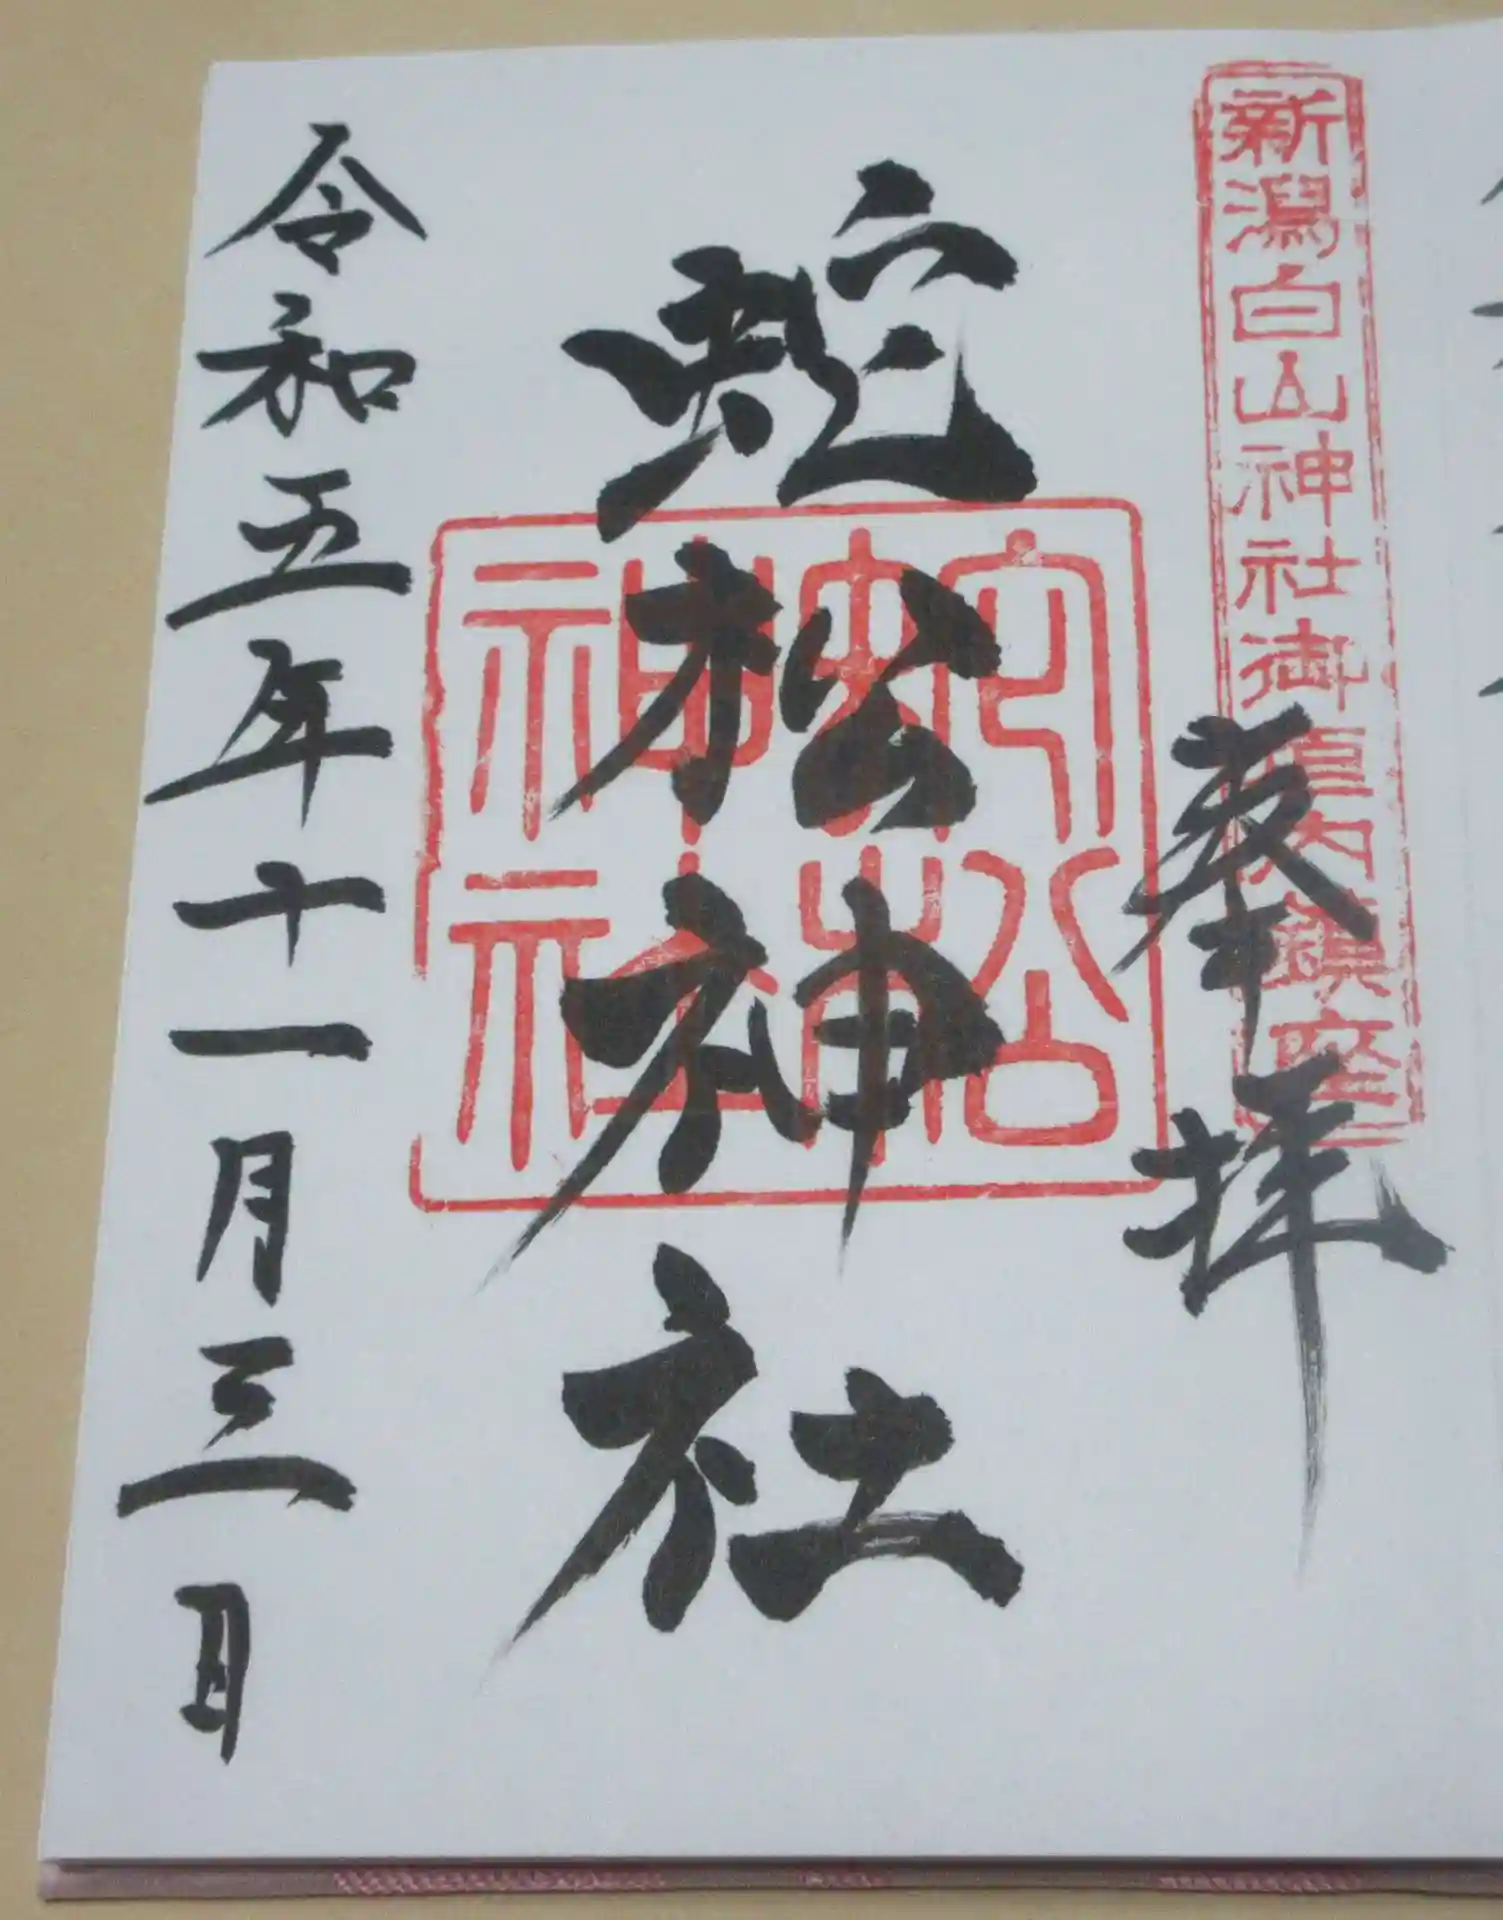 新潟白山神社御垣内鎮座
奉拝
蛇松神社
蛇松神社
令和五年十一月三日